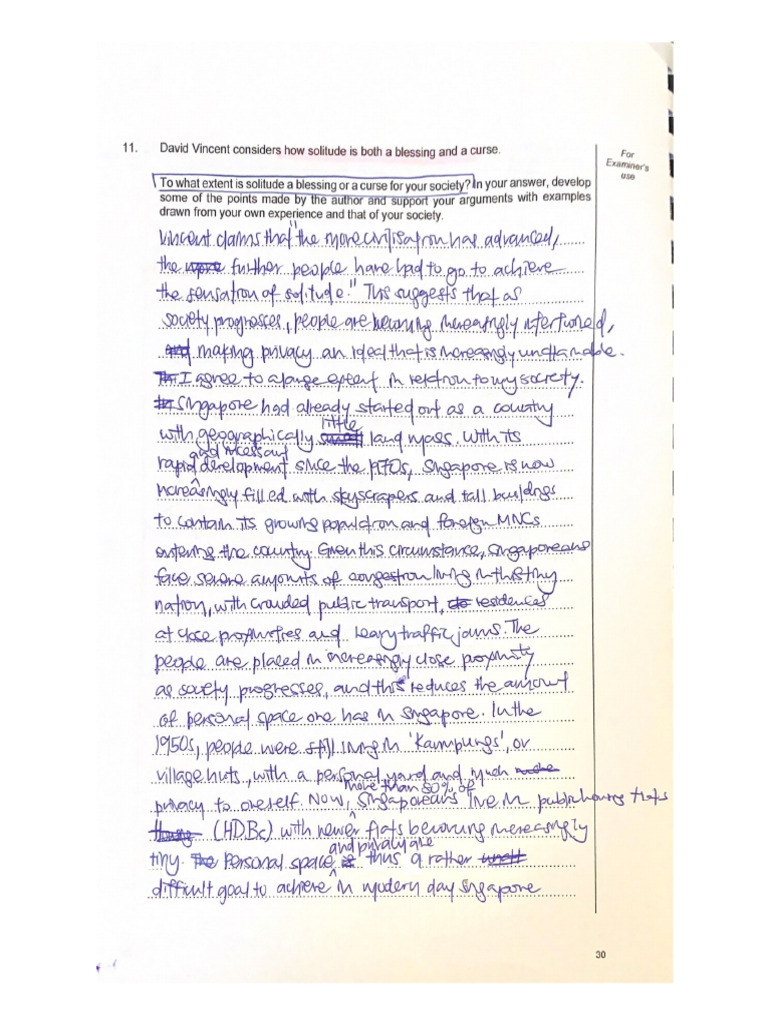 11. David Vincent considers how solitude is both a blessing and a curse.
For
Examiner's
use
To what extent is solitude a blessing or a curse for your society? In your answer, develop
some of the points made by the author and support your arguments with examples
drawn from your own experience and that of your society.
Vincent claims that "the more civilisation has advanced,
the more further people have had to go to achieve
the sensation of solitude." This suggests that as
society progresses, people are becoming increasingly intertwined,
and making privacy an ideal that is increasingly unattainable.
I agree to a large extent in relation to my society.
Singapore had already started out as a country
with geographically little small land mass. With its
rapid and incessant development since the 1970s, Singapore is now
increasingly filled with skyscrapers and tall buildings
to contain its growing population and foreign MNCs
entering the country. Given this circumstance, Singaporeans
face severe amounts of congestion living in this tiny
nation, with crowded public transport, residences
at close proximities and heavy traffic jams. The
people are placed in increasingly close proximity
as society progresses, and this reduces the amount
of personal space one has in Singapore. In the
1950s, people were still living in 'Kampungs', or
village huts, with a personal yard and much
privacy to oneself. Now, more than 80% of Singaporeans live in public housing flats
(HDBs) with newer flats becoming increasingly
tiny. The Personal space and privacy are thus a rather
difficult goal to achieve in modern day Singapore
30